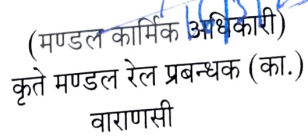 (मण्डल कार्मिक अधिकारी)
कृते मण्डल रेल प्रबन्धक (का.)
वाराणसी